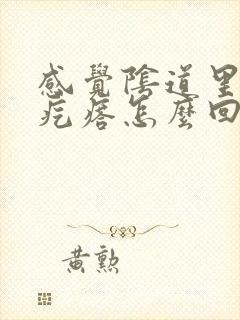 感覺陰道里
疙瘩怎麼回
黃勲